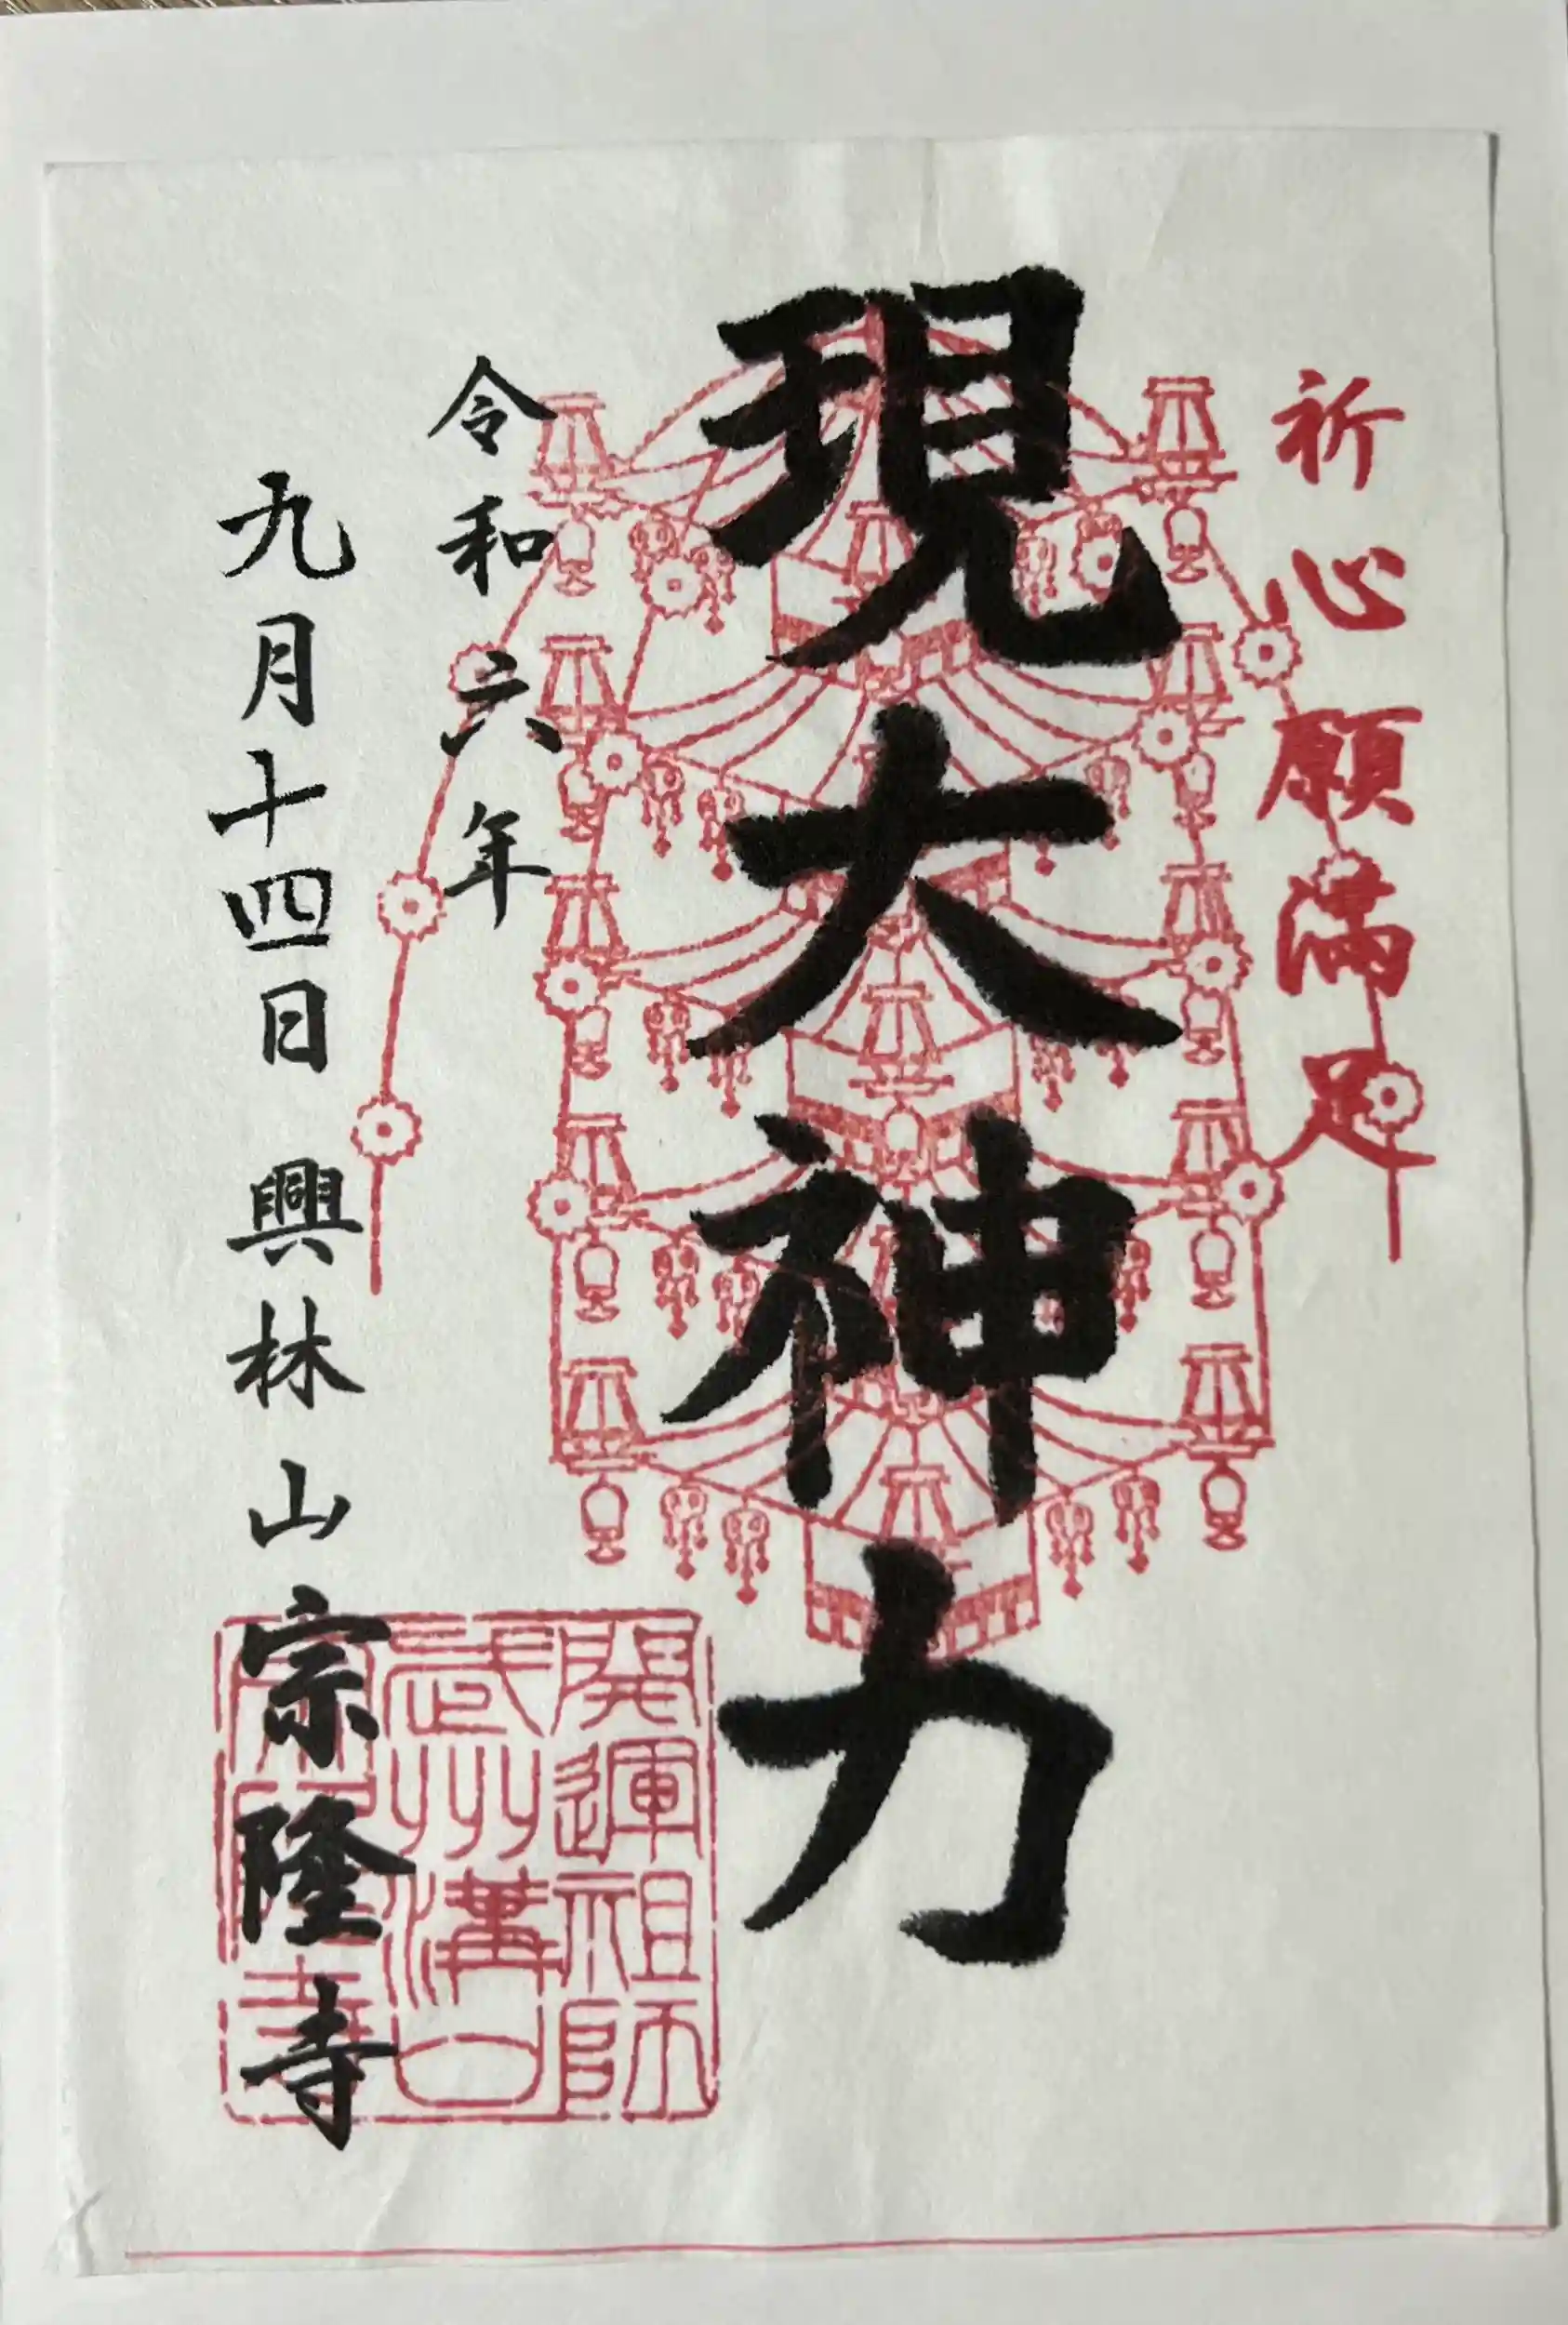 祈心願満足
現大神力
令和六年
九月十四日 興林山 宗隆寺
開運祖師
武州溝口
宗隆寺